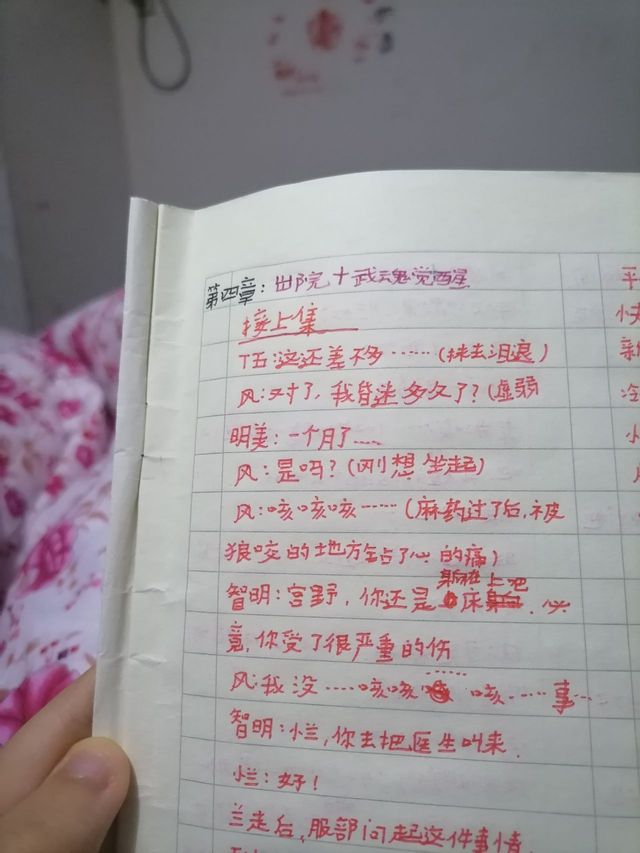 第四章：出院十武魂觉醒
接上集
T五：这还差不多……（抹去泪浪）
风：对了，我昏迷多久了？（虚弱
明美：一个月了……
风：是吗？（刚想坐起）
风：咳咳咳……（麻药过了后，被
狼咬的地方钻了心的痛）
智明：宫野，你还是躺在床上吧
竟，你受了很严重的伤
风：我没……咳咳……咳……事…
智明：烂，你去把医生叫来．
烂：好！
兰走后，服部问起这件事情．
平
快
冷